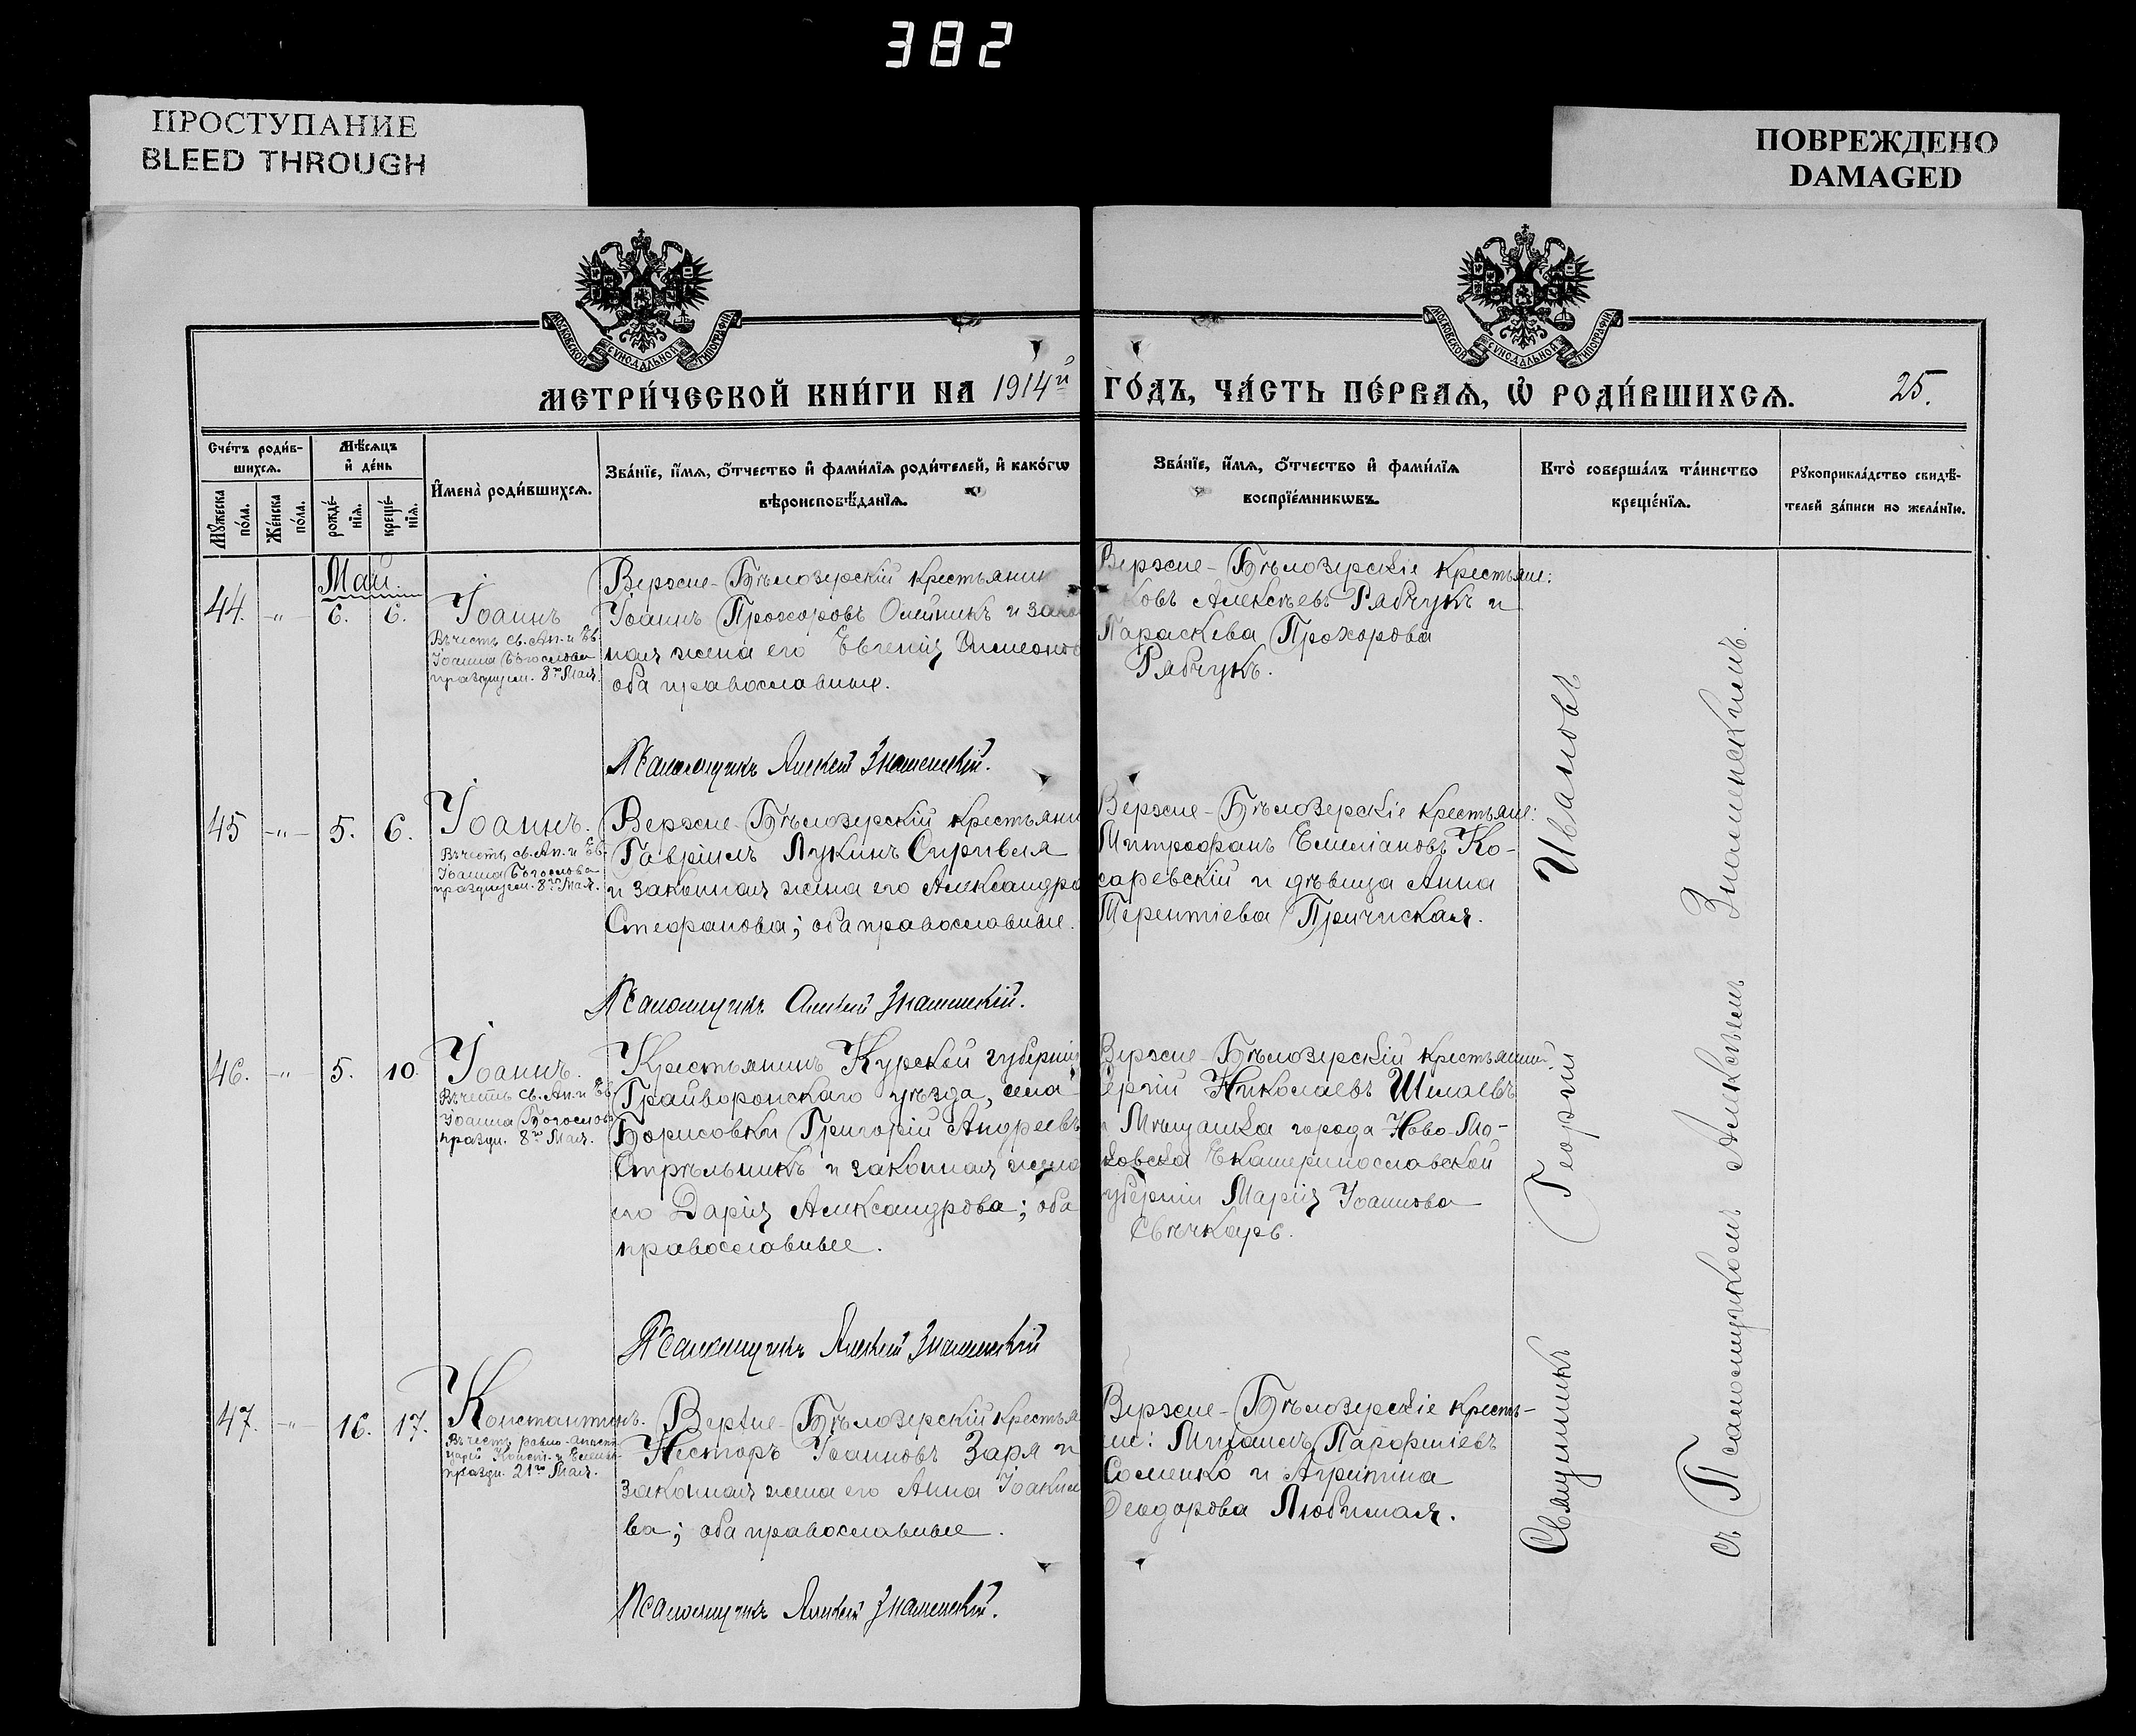 382
ПРОСТУПАНИЕ
BLEED THROUGH
ПОВРЕЖДЕНО
DAMAGED
МОСКОВСКОЙ СѴНОДАЛЬНОЙ ТИПОГРАФІИ
МОСКОВСКОЙ СѴНОДАЛЬНОЙ ТИПОГРАФІИ
МЕТРИ́ЧЕСКОЙ КНИ́ГИ НА 1914й ГО́ДЪ, ЧА́СТЬ ПЕ́РВАѦ, Ѡ҆ РОДИ́ВШИХСѦ. 25.
Сче́тъ роди́в-
шихсѧ.
Мꙋ́жеска по́ла.
Же́нска по́ла.
Мѣ́сѧцъ
и҆ де́нь
рожде́-
нїѧ.
креще́-
нїѧ.
И҆мена̀ роди́вшихсѧ.
Зва́нїе, и҆́мѧ, ѻ҆́тчество и҆ фами́лїѧ роди́телей, и҆ како́гѡ
вѣроисповѣ́данїѧ.
Зва́нїе, и҆́мѧ, ѻ҆́тчество и҆ фами́лїѧ
воспрїе́мникѡвъ.
Кто̀ соверша́лъ та́инство
креще́нїѧ.
Рꙋкоприкла́дство свидѣ́-
телей за́писи по жела́нїю.
Май.
44. -"- 6. 6.
Іоаннъ
Въ честь св. Ап. и Ев.
Іоанна Богослова
празднуем. 8го Мая.
Верхне-Бѣлозерскій крестьянин
Іоаннъ Прохоровъ Олейникъ и зако
ная жена его Евгенія Симеоно
оба православные.
Псаломщикъ Алексѣй Знаменскій.
Верхне-Бѣлозерскіе крестьяне:
ковъ Алексѣевъ Рябчукъ и
Параскева Прохорова
Рябчукъ.
45 -"- 5. 6.
Іоаннъ.
Въ честь св. Ап. и Ев.
Іоанна Богослова
празднуем. 8го Мая.
Верхне-Бѣлозерскій крестьяни
Гавріилъ Лукинъ
и законная жена его Александра
Стефанова; оба православные.
Псаломщикъ Алексѣй Знаменскій.
Верхне-Бѣлозерскіе крестьяне:
Митрофанъ Емеліановъ Ко-
саревскій и дѣвица Анна
Терентіева Причиская.
46. -"- 5. 10.
Іоаннъ.
Въ честь св. Ап. и Ев.
Іоанна Богослов
праздн. 8го Мая.
Крестьянинъ Курской губерніи
Грайворонскаго уѣзда, села
Борисовки Григорій Андреевъ
Стрѣльникъ и законная жена
его Дарія Александрова; оба
православные.
Псаломщикъ Алексѣй Знаменскій
Верхне-Бѣлозерскій крестьянин
ергій Николаевъ Шмаевъ
и Мѣщанка города Ново-Мо-
сковска Екатеринославской
губерніи Марія Іоаннова
Свѣчкарь.
47. -"- 16. 17.
Константинъ.
Въ честь равно-апост.
царей Конст. и Елены
праздн. 21го Мая.
Верхне-Бѣлозерскій крестья
Несторъ Іоанновъ Заря и
законная жена его Анна Іоаким
ва; оба православные.
Псаломщикъ Алексѣй Знаменскій.
Верхне-Бѣлозерскіе кресть-
не: Михаилъ Парфеніевъ
Соменко и Агрипина
Феодорова Любимая.
Священникъ Георгій Ивановъ
съ Псаломщикомъ Алексѣемъ Знаменскимъ.